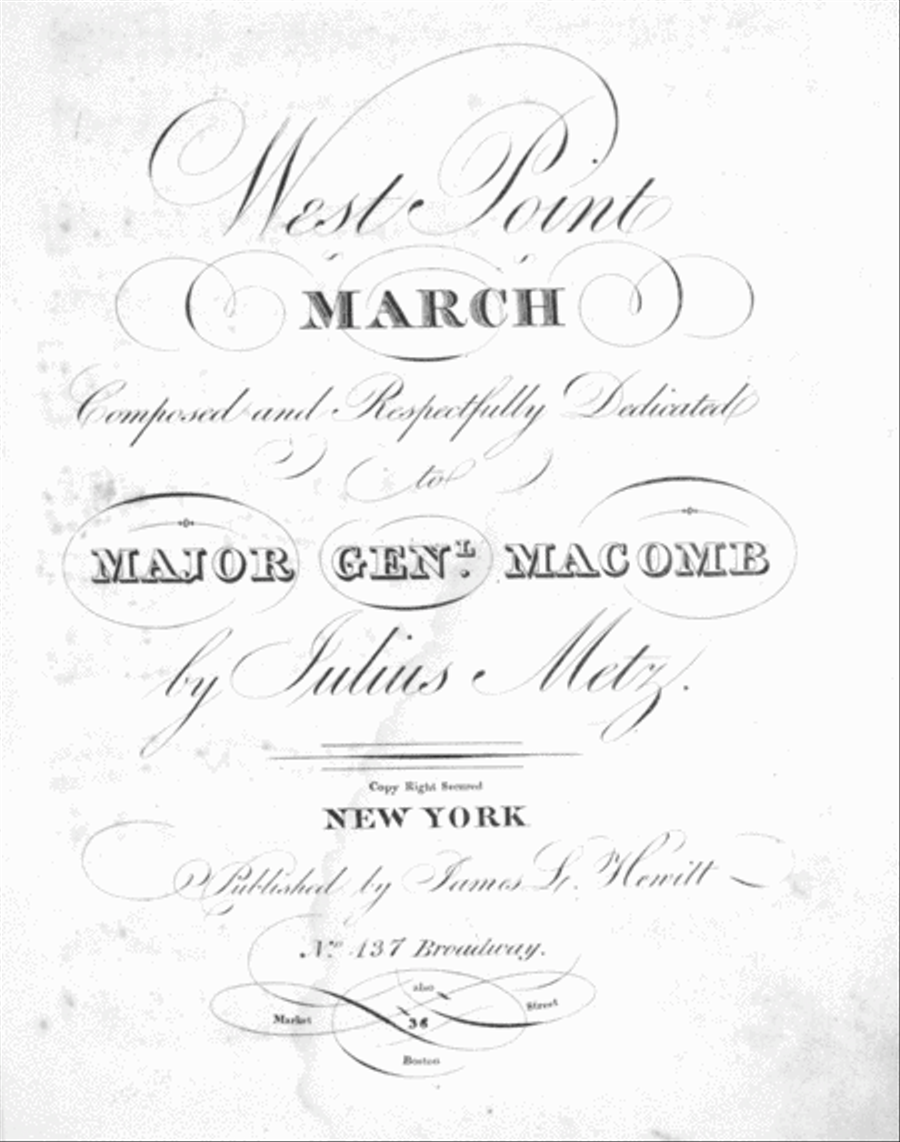 West Point
MARCH
Composed and Respectfully Dedicated
to
MAJOR GENL. MACOMB
by Julius Metz.
Copy Right Secured
NEW YORK
Published by James L. Hewitt
No. 137 Broadway.
also
36 Market Street
Boston